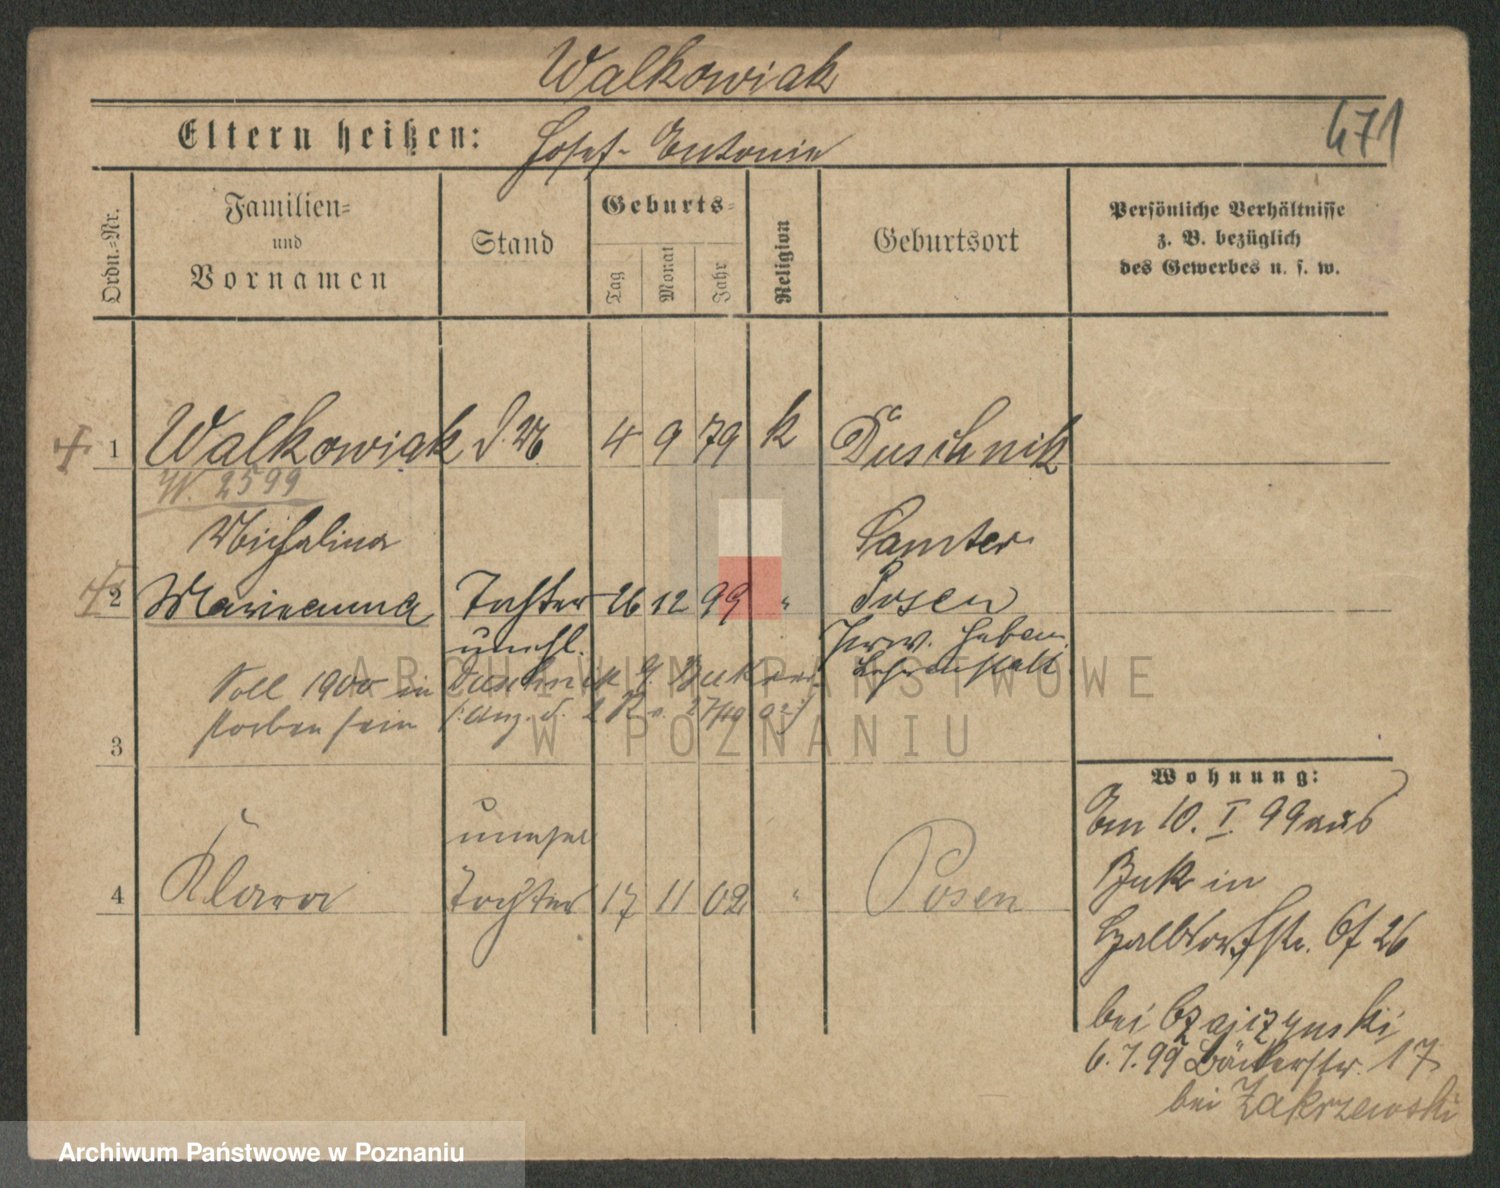 Walkowiak
Eltern heißen: Josef - Antonie
471
Ordn.=Nr.
Familien=
und
Vornamen
Stand
Geburts=
Tag
Monat
Jahr
Religion
Geburtsort
Persönliche Verhältnisse
z. B. bezüglich
des Gewerbes u. s. w.
1 Walkowiak d. M. 4 9 79 k Duschnik
W. 2599
Michalina Samter
2 Marianna Tochter 26 12 99 " Posen
unehl. Hebam.
Lehranstalt
Soll 1900 in Duschnik
storben sein
3
unehel
4 Klara Tochter 17 11 02 " Posen
Wohnung:
Am 10. I. 99 aus
Buk in
Halbdorfstr. 26
bei Czajczynski
6. 7. 99 Bäckerstr. 17
bei Zakrzewski
ARCHIWUM PAŃSTWOWE
W POZNANIU
Archiwum Państwowe w Poznaniu